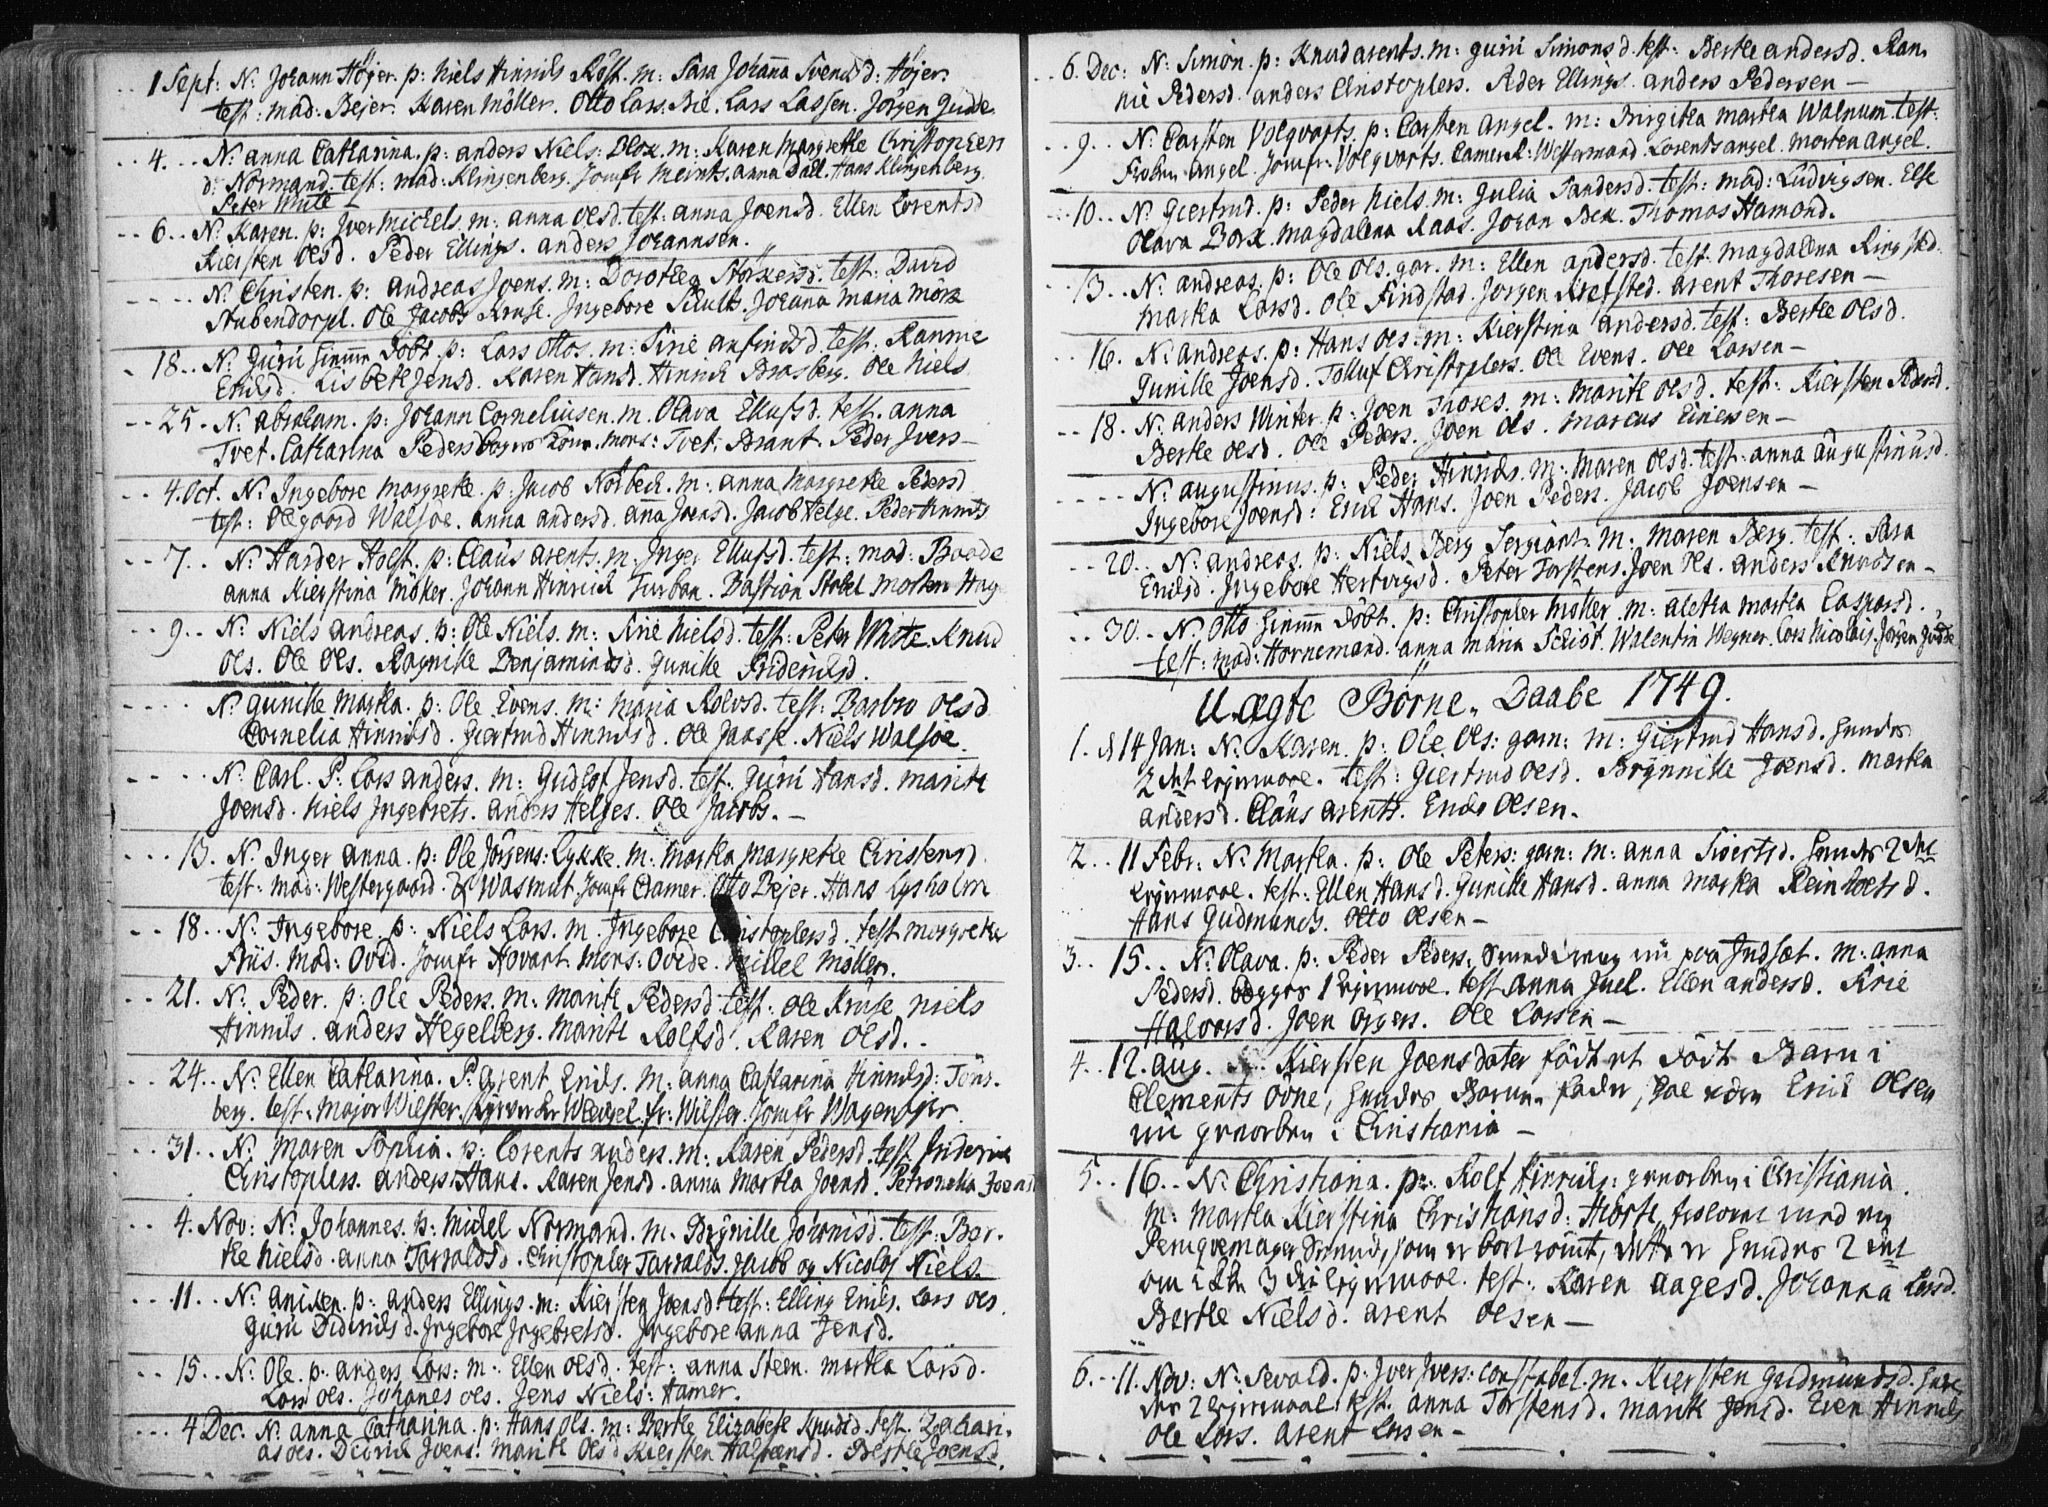 1 Sept: N: Johann Høyer. p: Niels Hinrichs Røst. m: Sara Johanna Svendsd: Høyer.
test: mad: Bejer. Karen Möller. Otto Lars. Brie. Lars Lassen. Jörgen Gude
4. N: anna Catharina. p: anders Niels: Beck. m: Karen Margrethe Christophers
d: Normand. test: mad: Klingenberg. Jomfr Meints. anna Dall. Hans Klingenberg.
Peter Mule
6. N: Karen. p: Jver Michels. m: anna Olsd. test: anna Joensd. Ellen Lorentsd
Kiersten Olsd. Peder Ellings. anders Johannsen.
N: Christen. p: andreas Joens. m: Dorothea Størkersd. test: David
Stubendorph. Ole Jacobs Kruse. Ingebore Schult. Johanna Maria Mörk
18. N: Guru hiemme Döbt. p: Lars Ottos. m: Sirie anfindsd. test: Rannie
Erichsd. Lisbeth Jensd. Karen Hansd. Hinrich Brasberg. Ole Niels
25. N: abraham. p: Johann Corneliusen. m. Olava Ellufsd. test. anna
Tvet. Catharina Peders mons: Tvet. Brant. Peder Jvers
4. Oct. N: Ingebore Margrethe. p: Jacob Norbech. m: anna Margrethe Pedersd
test: Olegaard Walsøe. anna andersd. ana Joensd. Jacob Helge. Peder Hinrichs
7. N: Harder Holst. p: Claus arents. m: Inger Ellufsd. test: mad: Baade
anna Kierstina Möller. Johann Hinrich Turban. Bastian Stabel Morten Hag
9. N: Niels andreas. p: Ole Niels. m: Sirie Nielsd. test: Peter White. Knud
Ols. Ole Ols. Ragnille Benjaminsd. Gunille Friderichsd.
N: Gunille Martha. p: Ole Evens. m: Maria Rolvsd. test: Barbro Olsd
Cornelia Hinrichsd. Giertrud Hinrichsd. Ole Jansse. Niels Walsøe.
N: Carl. P: Lars anders. m: Gudlof Jensd. test. Guru Hansd. marite
Joensd. Niels Ingebrets. anders Helges. Ole Jacobs.
13. N: Inger anna. p: Ole Jörgens: Lykke. m: Martha Margrethe Christensd.
test: mad: Westergaard. & Wasmut Jomfr Cramer. Otto Bejer. Hans Lysholm
18. N: Ingebore. p: Niels Lars. m. Ingebore Christophersd. test. Margrethe
Friis. Mad: Ovid. Jomfr Hovart. Mons: Ovide. Michel Möller.
21. N: Peder. p: Ole Peders. m: Marite Pedersd. test: Ole Kruse Niels
Hinrichs. anders Hegelberg. Marite Rolfsd. Karen Olsd.
24. N: Ellen Catharina. P: arent Erichs. m: anna Catharina Hinrichsd: Töns-
berg. test: Major Wilster. Weigel. fr: Wilster. Jomfr Wagenøyer.
31. N: Maren Sophia. p: Lorents anders. m: Karen Pedersd. test Friderich
Christophers. anders Hans. Karen Jensd. anna Martha Joensd. Petronelia Joensd
4. Nov: N: Johannes. p: Michel Normand. m. Brynille Johansd. test: Ber-
the Nielsd. anna Tarraldsd. Christopher Tarralds. Jacob og Nicolaj Niels.
11. N: aniken. p: anders Ellings. m: Kiersten Joensd. test: Elling Erichs. Lars Ols
Guru Didrichsd. Ingebore Ingebretsd. Ingebore anna Jensd.
15. N: Ole. p: anders Lars: m: Ellen Olsd. test: anna Steen. Martha Larsd.
Lars Ols. Johanes Ols. Jens Niels: Hamer.
4 Dec. N: anna Catharina. p: Hans Ols. m: Berthe Elizabeth Knudsd. test. Zachari-
as Ols. Didrich Joens. Marite Olsd Kiersten Halstensd. Berthe Joensd.
6. Dec: N: Simon. p: Knud arents. m: Guru Simonsd. test: Berthe andersd. Ran-
nie Pedersd. anders Christophers. Peder Ellings. anders Pedersen
9. N: Carsten Volqvarts. p: Carsten Angel. m: Birgitha Martha Walnum. test:
Froken Angel. Jomfr: Volqvarts. Camerr: Westermand. Lorents angel. Morten angel.
10. N: Giertrud. p: Peder Niels. m: Julia Sandersd. test: mad: Ludvigsen. Else
Olava Bork. Magdalena Raas. Johan Bek. Thomas Hamond.
13. N: andreas. p: Ole Ols. gar. m: Ellen andersd. test. Magdalena Ringsted.
Martha Larsd. Ole Findstad. Jorgen Krefsted. arent Thoresen
16. N: andreas. p: Hans Ols. m: Kierstina andersd. test: Berthe Olsd.
Gunille Joensd. Tolluf Christophers. Ole Evens. Ole Larsen
18. N: anders Winter. p: Joen Thores. m: Marite Olsd. test: Kiersten Pedersd.
Berthe Olsd. Ole Peders. Joen Ols. Marcus Einersen
N: augustinus. p: Peder Hinrichs. m: Maren Olsd. test: anna augustinusd.
Ingebore Joensd: Erich Hans. Joen Peders. Jacob Joensen
20. N: andreas. p: Niels Berg Sergiant. m: Maren Berg. test: Sara
Erichsd. Ingebore Hertvigsd. Peter Torstens. Joen Ols. anders Knudsen
30. N: Otto hiemme döbt. p: Christopher Möller. m: aletha Martha Caspersd.
test: mad: Hornemand. anna Maria Schiöt. Walentin Wegner. Lars Nicolais. Jörgen Gude
U-ægte Børne-Daabe 1749.
1. d 14 Jan: N: Karen. p: Ole Ols: garn: m: Giertrud Hansd. hendes
2det leyermaal. test: Giertrud Olsd. Brynnille Joensd. Martha
andersd. Claus arents. Erich Olsen.
2. 11 Febr: N: Martha. p: Ole Peters: garn: m: anna Sivertsd. hendes 2det
leyermaal. test: Ellen Hansd. Gunille Hansd. anna Martha Reinholtsd.
Hans Gudmunds. Otto Olsen
3. 15. N: Olava. p: Peder Peders. Svend nu paa Indset. m: anna
Pedersd. begges 1 leyermaal. test anna Juel. Ellen andersd. Kirie
Halvorsd. Joen Orgers. Ole Larsen
4. 12. aug. Kiersten Joensdater födt et dödt Barn i
Clements Ovne, hendes Barne-fader, sal være Erich Olsen
nu geworben i Christiania
5. 16. N: Christiana. p: Rolf Hinrichs: geworben i Christiania.
m: Martha Kierstina Christiansd: Hiorte trolovet med en
Peruqvemager Svend, som er bortrømt, dette er hendes 2det
om ikke 3die leyermaal. test: Karen aagesd. Johanna Larsd.
Berthe Nielsd. arent Olsen
6. 11. Nov: N: Sevald. p: Jver Jvers: constabel. m. Kiersten Gudmundsd. hen-
des 2 leyermaal. test. anna Torstensd. Marite Jonsd. Even Hinrichs
Ole Lars. arent Larsen